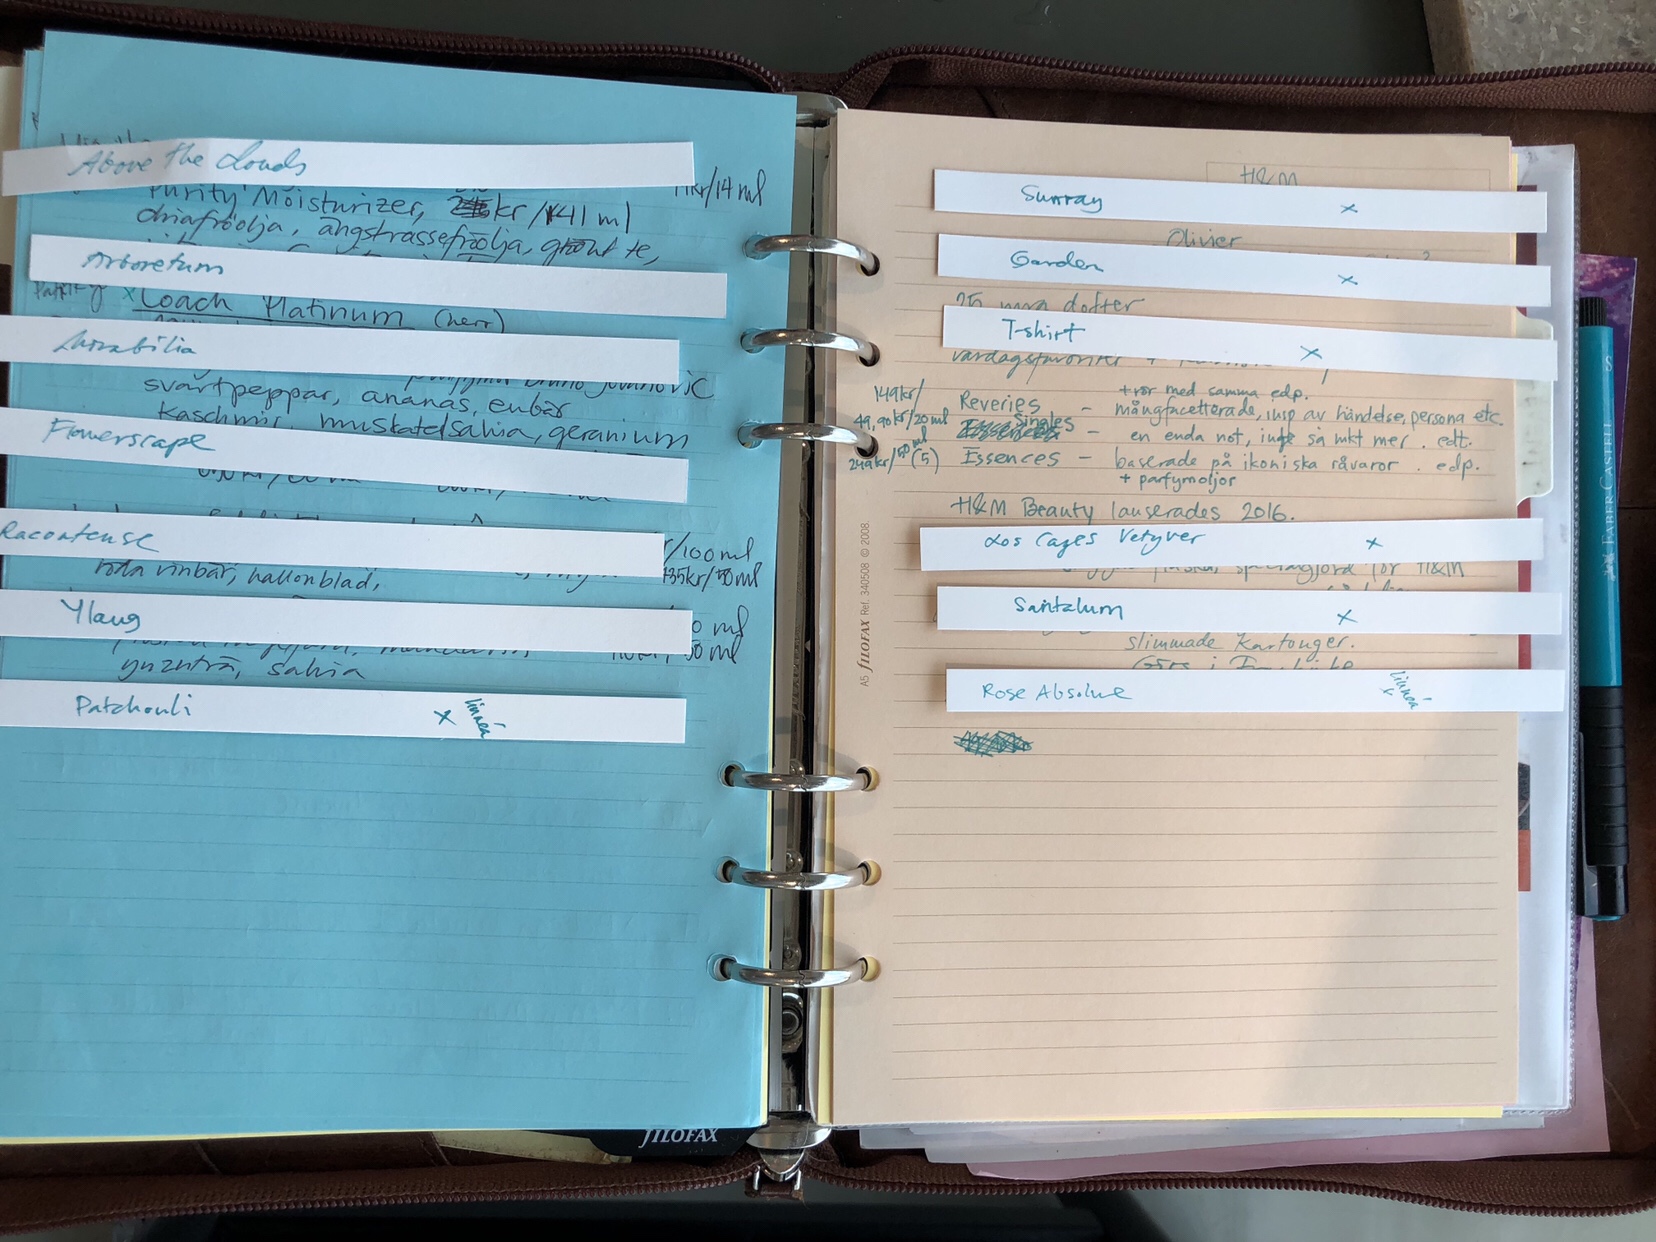 Above the Clouds
/14 ml
Purity Moisturizer, kr /141 ml
chiafröolja, ängstrassefröolja, grönt te,
Arboretum
x Coach Platinum (herr)
Mirabilia
svartpeppar, ananas, enbär
kaschmir, muskatelsalvia, geranium
Flowerscape
Racontense
/100 ml
röda vinbär, hallonblad,
135kr/50ml
Ylang
ml
50 ml
ynznträ, salvia
Patchouli x linnéa
FILOFAX
H&M
Sunray x
Olivier
Garden x
25 nya dofter
T-shirt x
vardagsfavoriter +
149kr/
+ rör med samma edp.
Reveries - mångfacetterade, insp av händelse, persona etc.
49,90kr/20 ml
Singles - en enda not, inge så mkt mer. edt.
249kr/ ml (5) Essences - baserade på ikoniska råvaror. edp.
+ parfymoljor
H&M Beauty lanserades 2016.
Los Cayes Vetyver x
specialgjord för H&M
Santalum x
slimmade kartonger.
Rose Absolue x linnéa
A5 FILOFAX Ref. 340508 © 2008.
FABER-CASTELL S